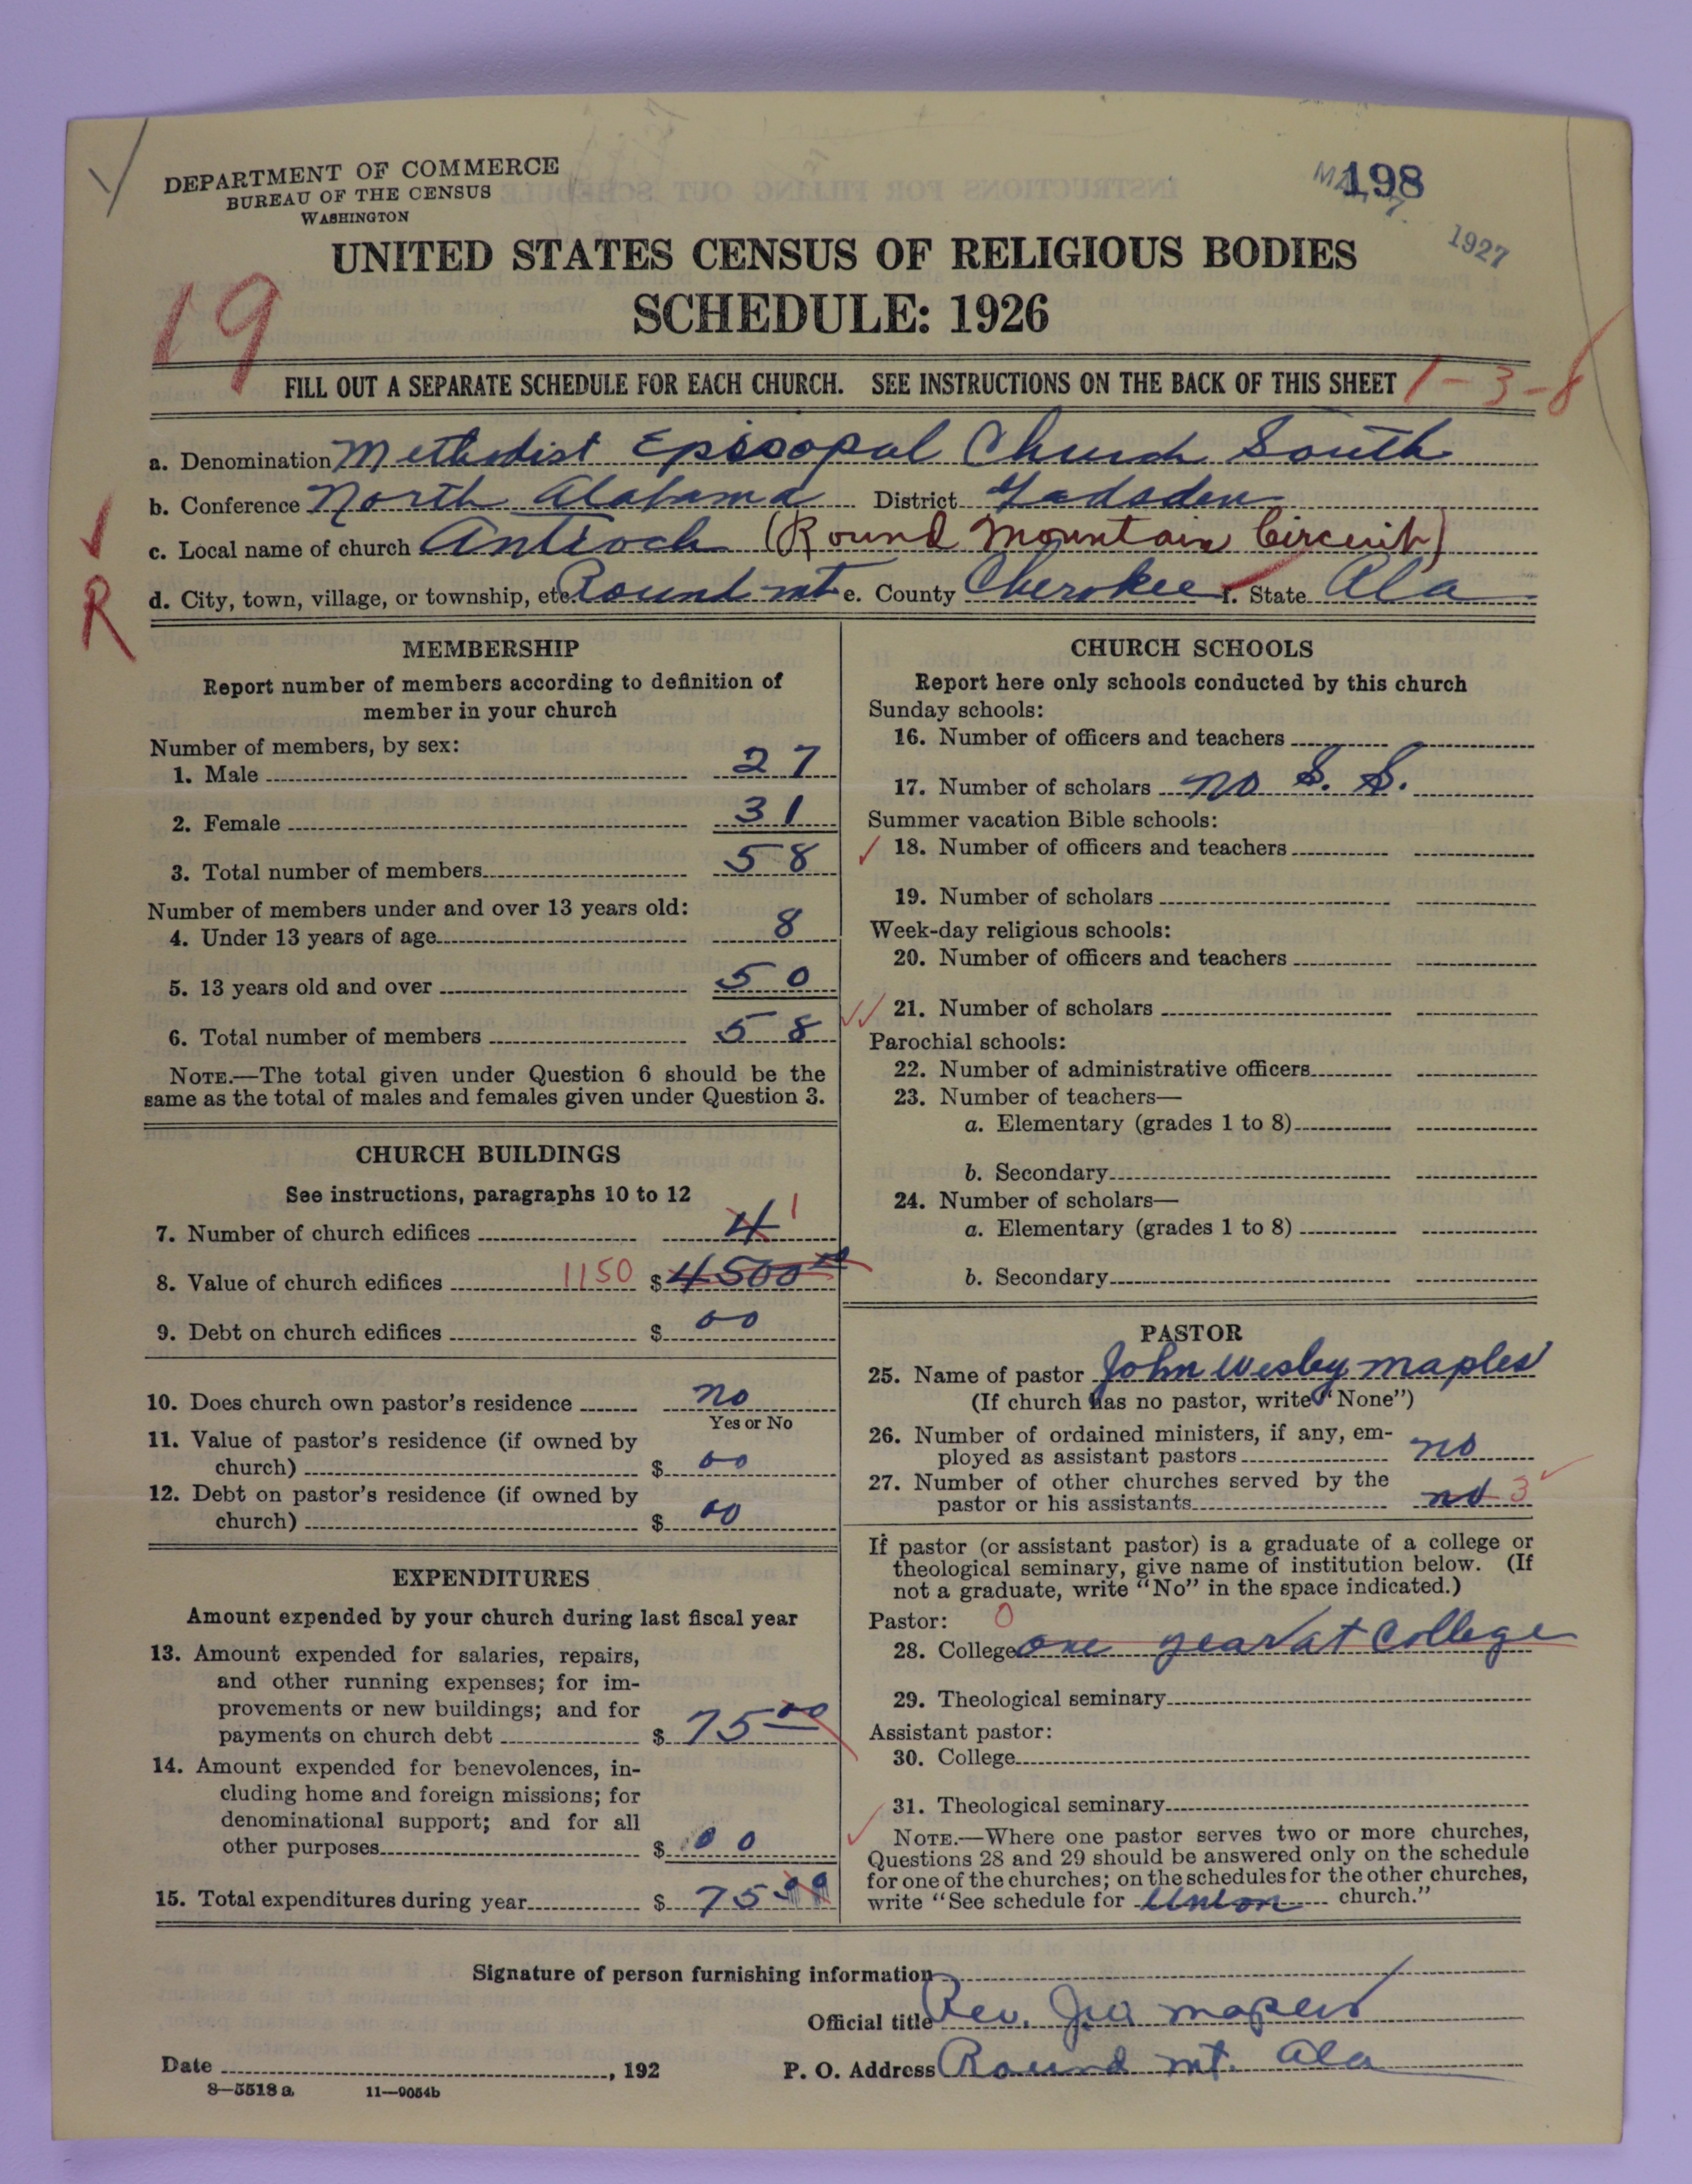 DEPARTMENT OF COMMERCE
BUREAU OF THE CENSUS
WASHINGTON
198
1927
UNITED STATES CENSUS OF RELIGIOUS BODIES
SCHEDULE: 1926
19
FILL OUT A SEPARATE SCHEDULE FOR EACH CHURCH. SEE INSTRUCTIONS ON THE BACK OF THIS SHEET 1-3-8
a. Denomination Methodist Episcopal Church South
b. Conference North Alabama District Gadsden
c. Local name of church Antioch (Round Mountain Circuit)
d. City, town, village, or township, etc. Round mt e. County Cherokee f. State Ala
R
MEMBERSHIP
Report number of members according to definition of
member in your church
Number of members, by sex:
1. Male 27
2. Female 31
3. Total number of members 58
Number of members under and over 13 years old:
4. Under 13 years of age 8
5. 13 years old and over 50
6. Total number of members 58
NOTE.—The total given under Question 6 should be the
same as the total of males and females given under Question 3.
CHURCH BUILDINGS
See instructions, paragraphs 10 to 12
7. Number of church edifices 4 1
8. Value of church edifices 1150 $ 4500 00
9. Debt on church edifices $ 00
10. Does church own pastor's residence no
Yes or No
11. Value of pastor's residence (if owned by
church) $ 00
12. Debt on pastor's residence (if owned by
church) $ 00
EXPENDITURES
Amount expended by your church during last fiscal year
13. Amount expended for salaries, repairs,
and other running expenses; for im-
provements or new buildings; and for
payments on church debt $ 75 00
14. Amount expended for benevolences, in-
cluding home and foreign missions; for
denominational support; and for all
other purposes $ 00
15. Total expenditures during year $ 75 00
CHURCH SCHOOLS
Report here only schools conducted by this church
Sunday schools:
16. Number of officers and teachers
17. Number of scholars no S. S.
Summer vacation Bible schools:
18. Number of officers and teachers
19. Number of scholars
Week-day religious schools:
20. Number of officers and teachers
21. Number of scholars
Parochial schools:
22. Number of administrative officers
23. Number of teachers—
a. Elementary (grades 1 to 8)
b. Secondary
24. Number of scholars—
a. Elementary (grades 1 to 8)
b. Secondary
PASTOR
25. Name of pastor John Wesley Maples
(If church has no pastor, write "None")
26. Number of ordained ministers, if any, em-
ployed as assistant pastors no
27. Number of other churches served by the
pastor or his assistants no 3
If pastor (or assistant pastor) is a graduate of a college or
theological seminary, give name of institution below. (If
not a graduate, write "No" in the space indicated.)
Pastor: 0
28. College one year at College
29. Theological seminary
Assistant pastor:
30. College
31. Theological seminary
NOTE.—Where one pastor serves two or more churches,
Questions 28 and 29 should be answered only on the schedule
for one of the churches; on the schedules for the other churches,
write "See schedule for Union church."
Signature of person furnishing information
Official title Rev. Maples
Date , 192
P. O. Address Round mt. Ala
8—5518 a 11—9054b